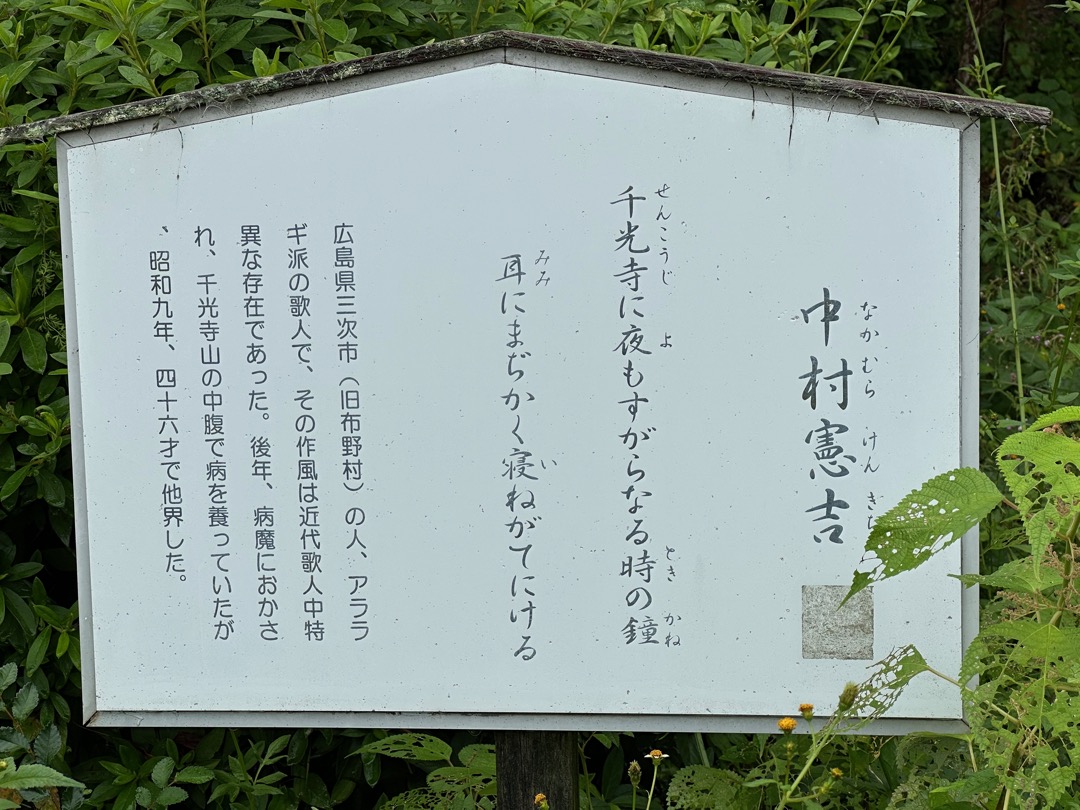 中村憲吉
なかむら けん き
千光寺に夜もすがらなる時の鐘
せんこうじ よ とき かね
耳にまぢかく寝ねがてにける
みみ い
広島県三次市（旧布野村）の人、アララ
ギ派の歌人で、その作風は近代歌人中特
異な存在であった。後年、病魔におかさ
れ、千光寺山の中腹で病を養っていたが
、昭和九年、四十六才で他界した。